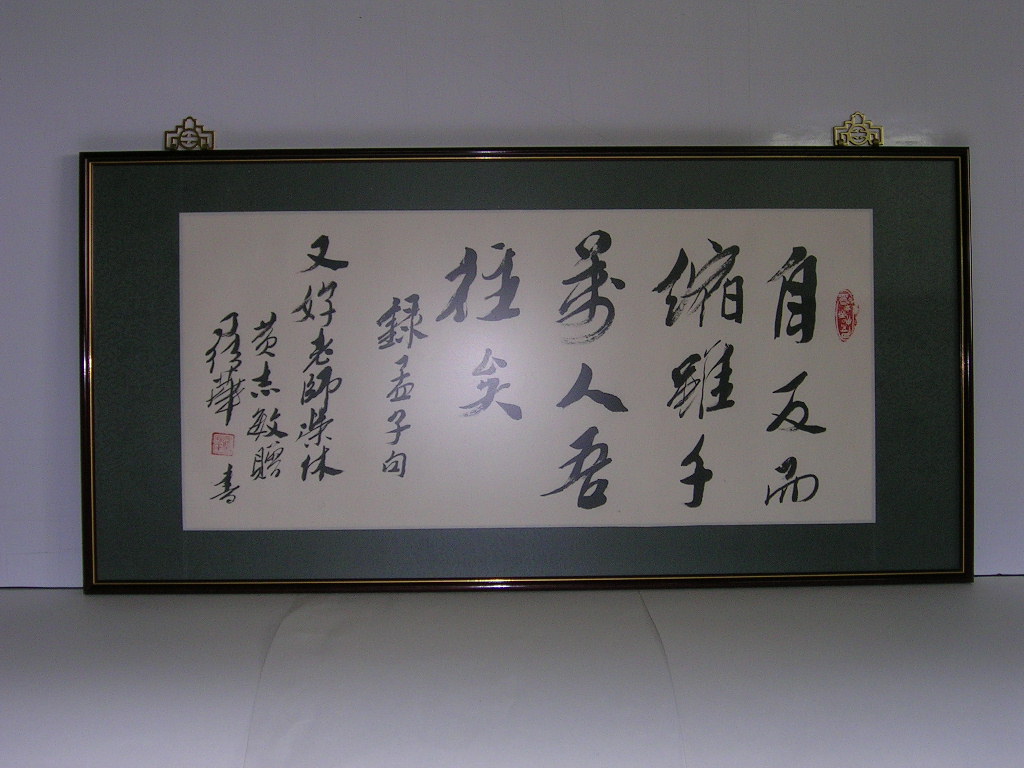 自反而
縮雖千
萬人吾
往矣
錄孟子句
又好老師榮休
黃志敏贈
華書